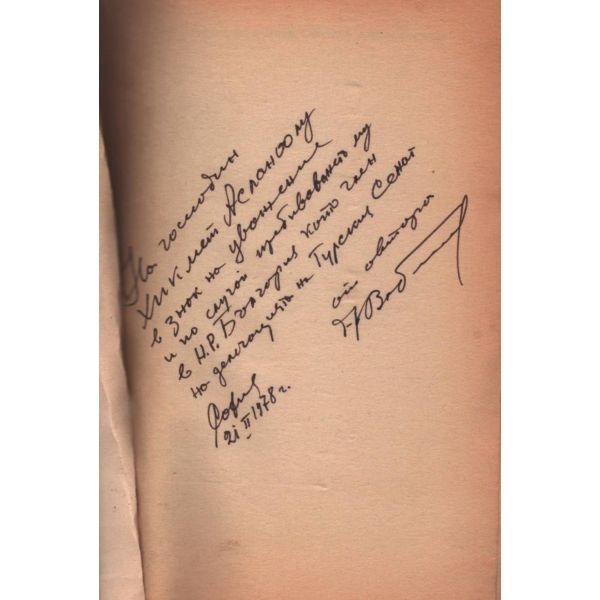 На господин
Хикмет Аслоноолу
в знак на уважение
и по случай пребиваването му
в Н.Р. България като член
на делегацията на Турския Сенат
от автора
София
21 II 1978 г.